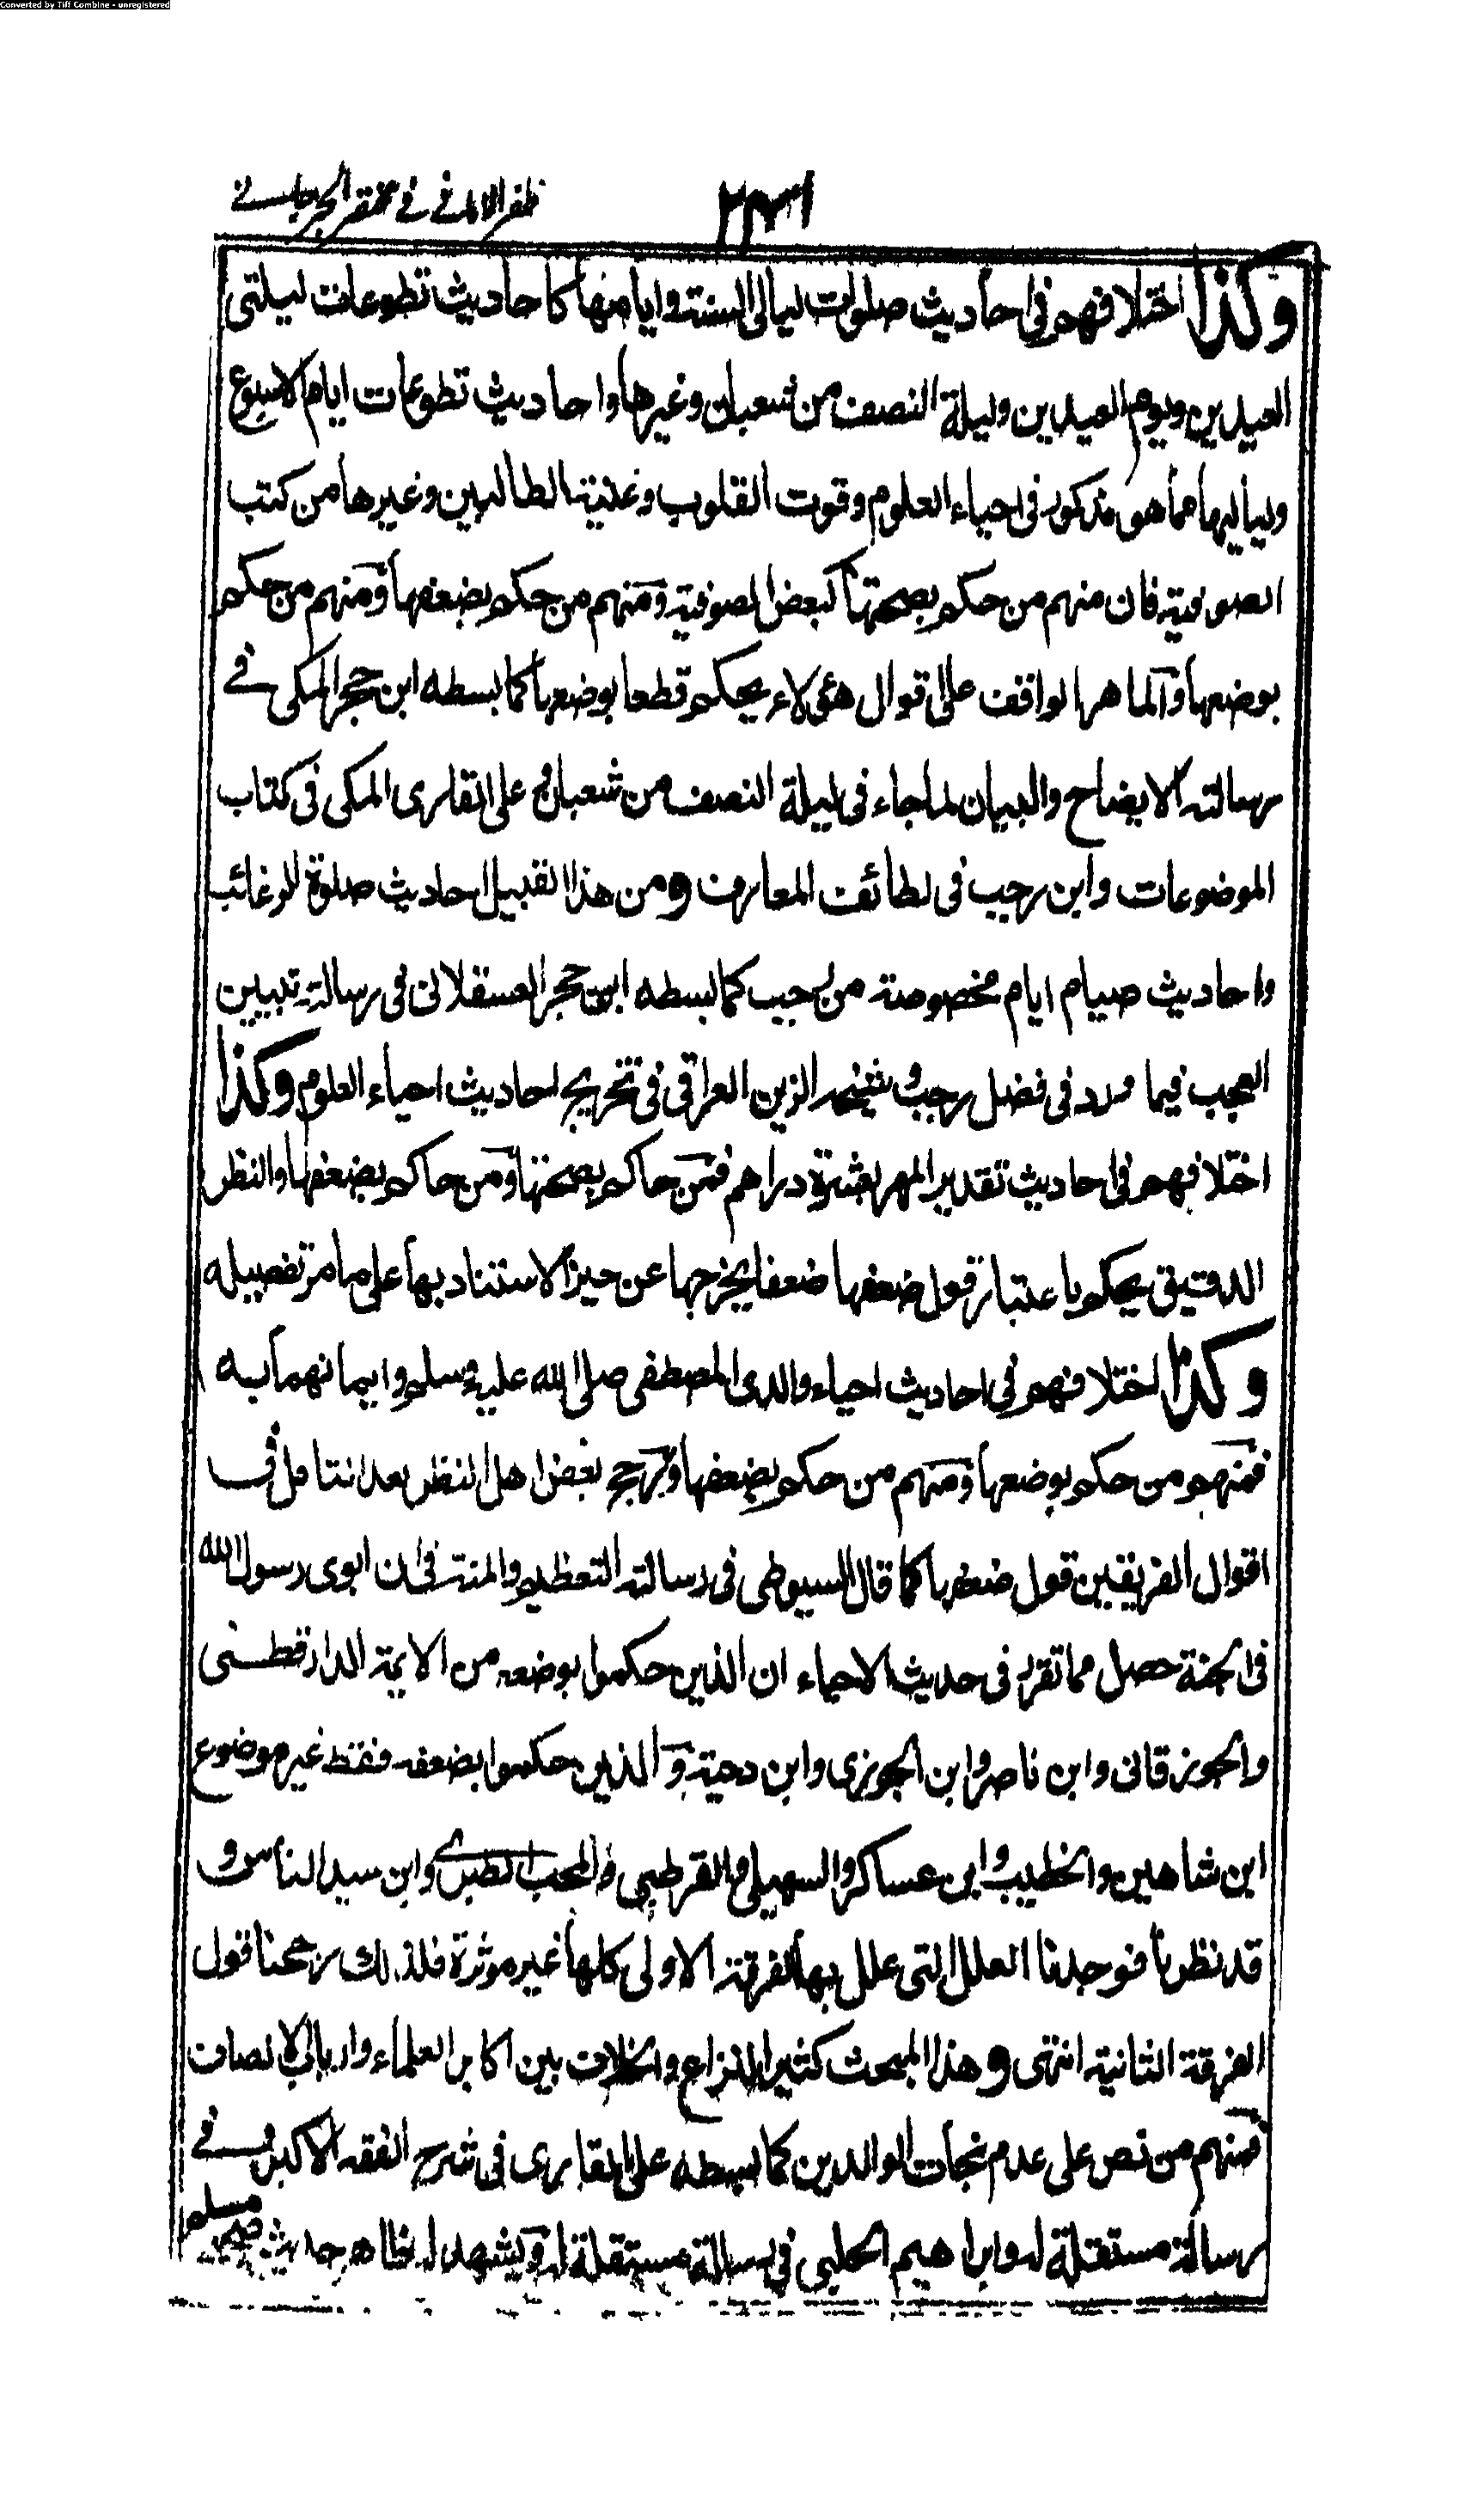 Converted by Tiff Combine - unregistered
ظفر الامانى فى مختصر الجرجانى
وكذا اختلافهم فى احاديث صلوات ليالى السنة وايامها كاحاديث تطوعات ليلتى
العيدين ويوم العيدين وليلة النصف من شعبان وغيرها واحاديث تطوعات ايام الاسبوع
ولياليها مما هو مذكور فى احياء العلوم وقوت القلوب وغنية الطالبين وغيرها من كتب
الصوفية فان منهم من حكم بصحتها كبعض الصوفية ومنهم من حكم بضعفها ومنهم من حكم
بوضعها والماهر الواقف على اقوال هؤلاء يحكم قطعا بوضعها كما بسطه ابن حجر المكى فى
رسالته الايضاح والبيان لما جاء فى ليلة النصف من شعبان وعلى القارى المكى فى كتاب
الموضوعات وابن رجب فى لطائف المعارف ومن هذا القبيل احاديث صلوة الرغائب
واحاديث صيام ايام مخصوصة من رجب كما بسطه ابن حجر العسقلانى فى رسالته تبيين
العجب فيما ورد فى فضل رجب وشيخه الزين العراقى فى تخريج احاديث احياء العلوم وكذا
اختلافهم فى احاديث تقدير المهر بعشرة دراهم فمن حاكم بصحتها ومن حاكم بضعفها والنظر
الدقيق يحكم باعتبار قول ضعفها ضعفا يخرجها عن حيز الاستناد بها على ما مر تفصيله
وكذا اختلافهم فى احاديث احياء والدى المصطفى صلى الله عليه وسلم وايمانهما به
فمنهم من حكم بوضعها ومنهم من حكم بضعفها ورجح بعض اهل النظر بعد التأمل فى
اقوال الفريقين قول ضعفها كما قال السيوطى فى رسالته التعظيم والمنة فى ان ابوى رسول الله
فى الجنة حصل مما تقرر فى حديث الاحياء ان الذين حكموا بوضعه من الايمة الدارقطنى
والجوزقانى وابن ناصر وابن الجوزى وابن دحية والذين حكموا بضعفه فقط غير موضوع
ابن شاهين والخطيب وابن عساكر والسهيلى والقرطبى والمحب الطبرى وابن سيد الناس و
قد نظرنا فوجدنا العلل التى علل بها الفرقة الاولى كلها غير موثرة فلذلك رجحنا قول
الفرقة الثانية انتهى وهذا المبحث كثير النزاع والخلاف بين اكابر العلماء وارباب الانصاف
فمنهم من نص على عدم نجات الوالدين كما بسطه على القارى فى شرح الفقه الاكبر وفى
رسالة مستقلة له وابراهيم الحلبى فى رسالة مستقلة له ويشهد له ظاهر حديث صحيح مسلم